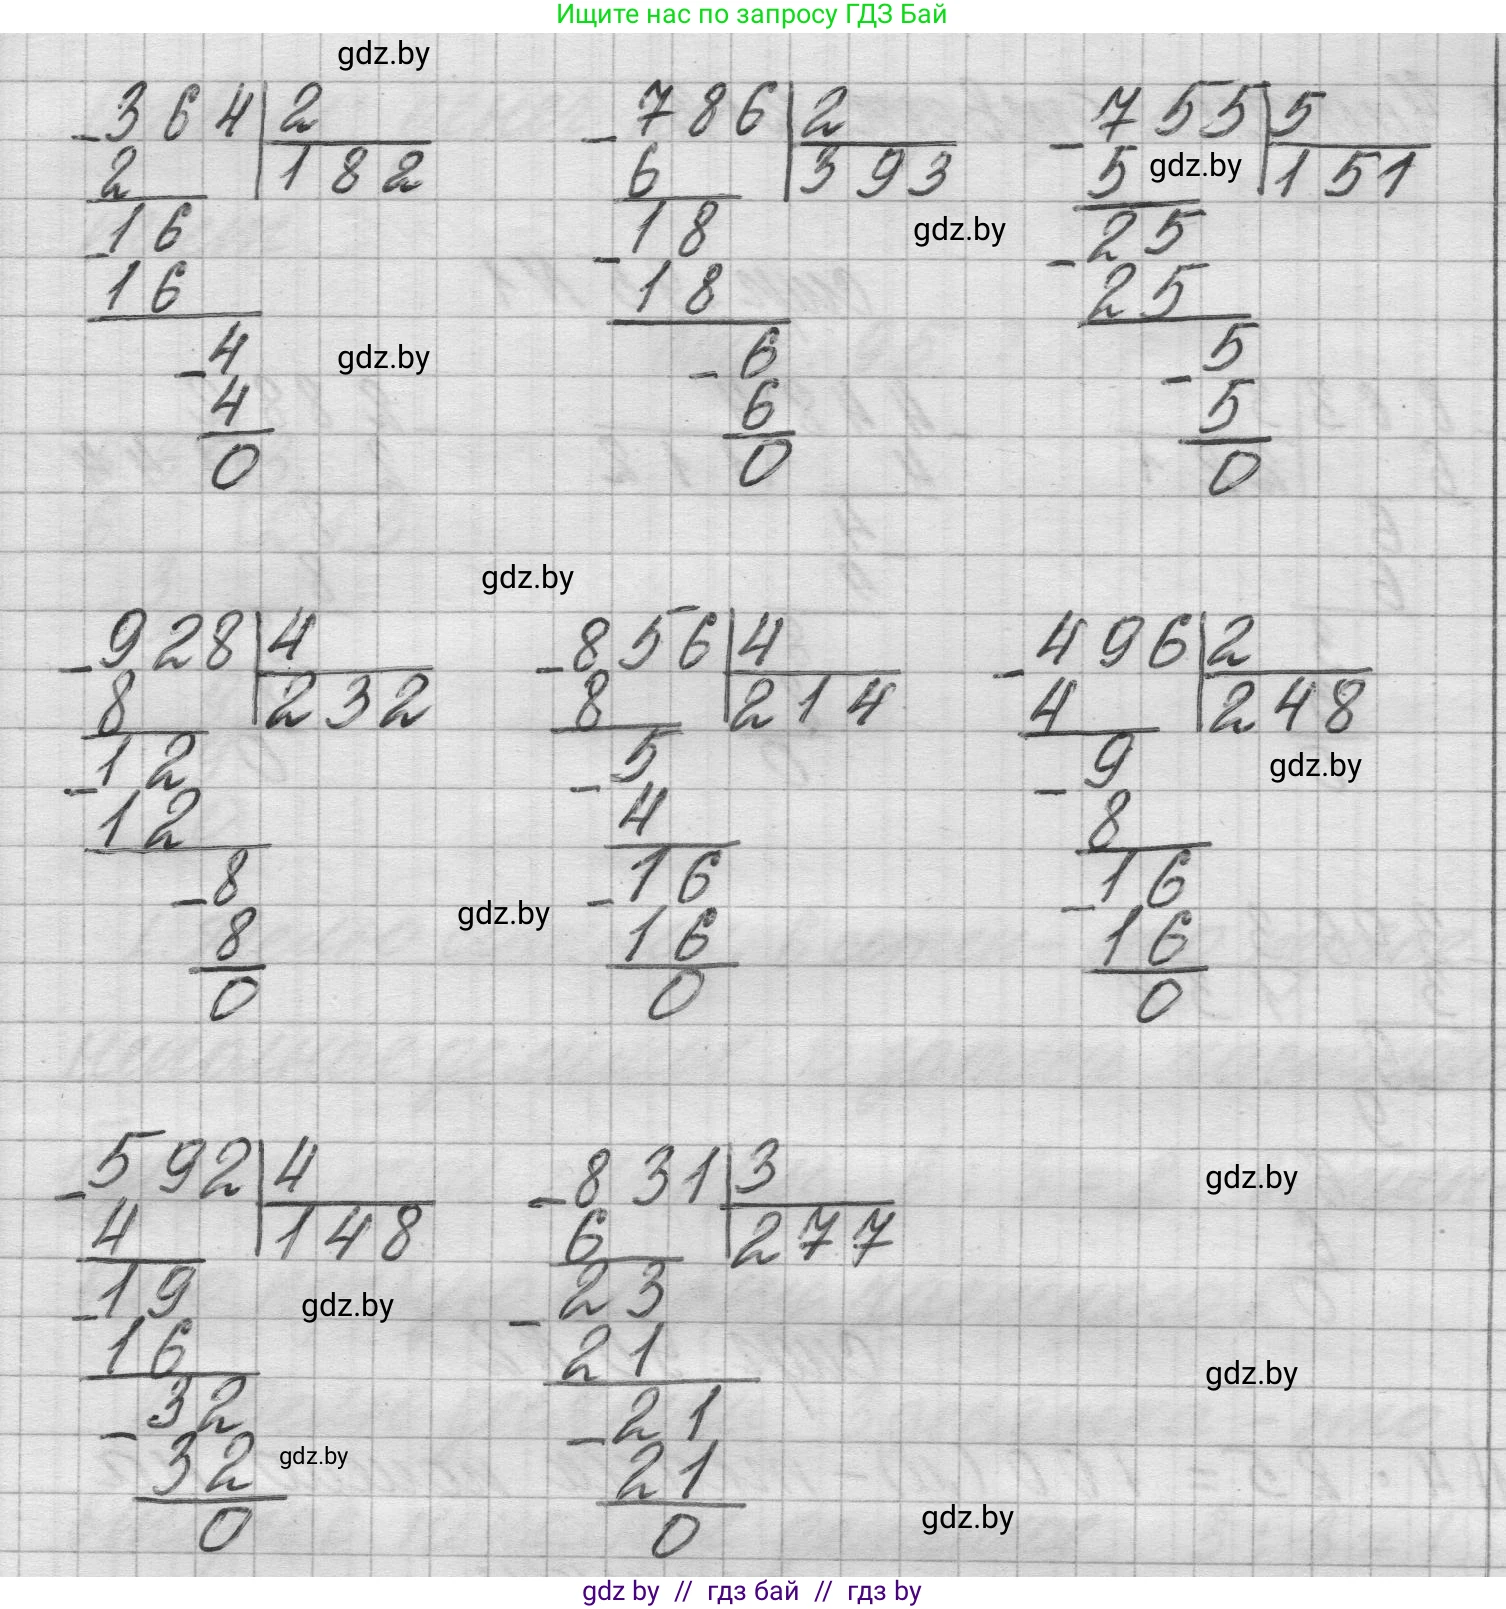 Ищите нас по запросу ГДЗ Бай
gdz.by
-364 | 2
2 | 182
-16
16
-4
4
0
-786 | 2
6 | 393
gdz.by
-18
18
-6
6
0
-755 | 5
5 gdz.by | 151
-25
25
-5
5
0
gdz.by
gdz.by
-928 | 4
8 | 232
-12
12
-8
8
0
-856 | 4
8 | 214
-5
4
-16
16
0
gdz.by
-496 | 2
4 | 248
-9
gdz.by
8
-16
16
0
-592 | 4
4 | 148
-19
gdz.by
16
-32
32
gdz.by
0
-831 | 3
6 | 277
-23
21
-21
21
0
gdz.by
gdz.by
gdz.by
gdz by // гдз бай // гдз by